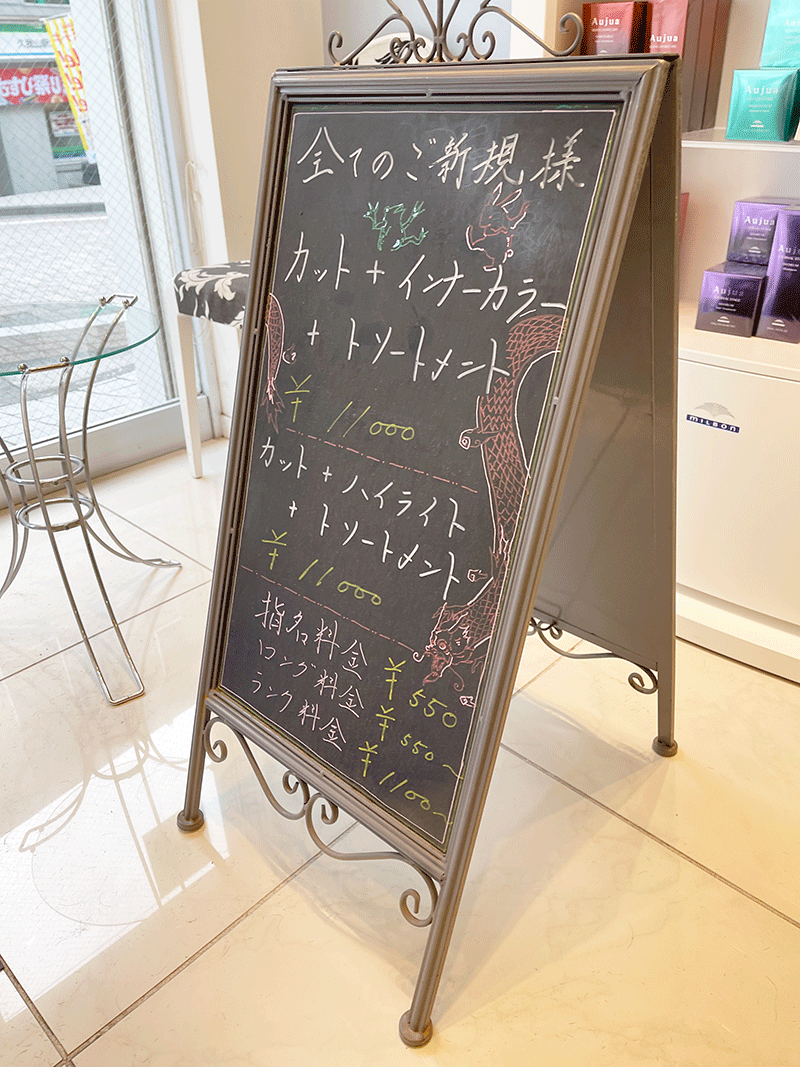 全てのご新規様
カット + インナーカラー
+ トリートメント
¥ 11000
カット + ハイライト
+ トリートメント
¥ 11000
指名料金 ¥550
ロング料金 ¥550~
ランク料金 ¥1100~
Aujua
Aujua
Aujua
Aujua
Aujua
Aujua
MILBON